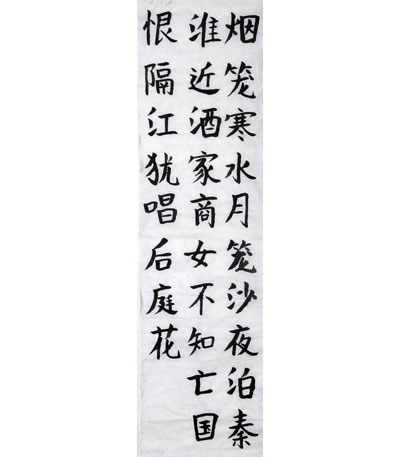 烟笼寒水月笼沙夜泊秦
淮近酒家商女不知亡国
恨隔江犹唱后庭花